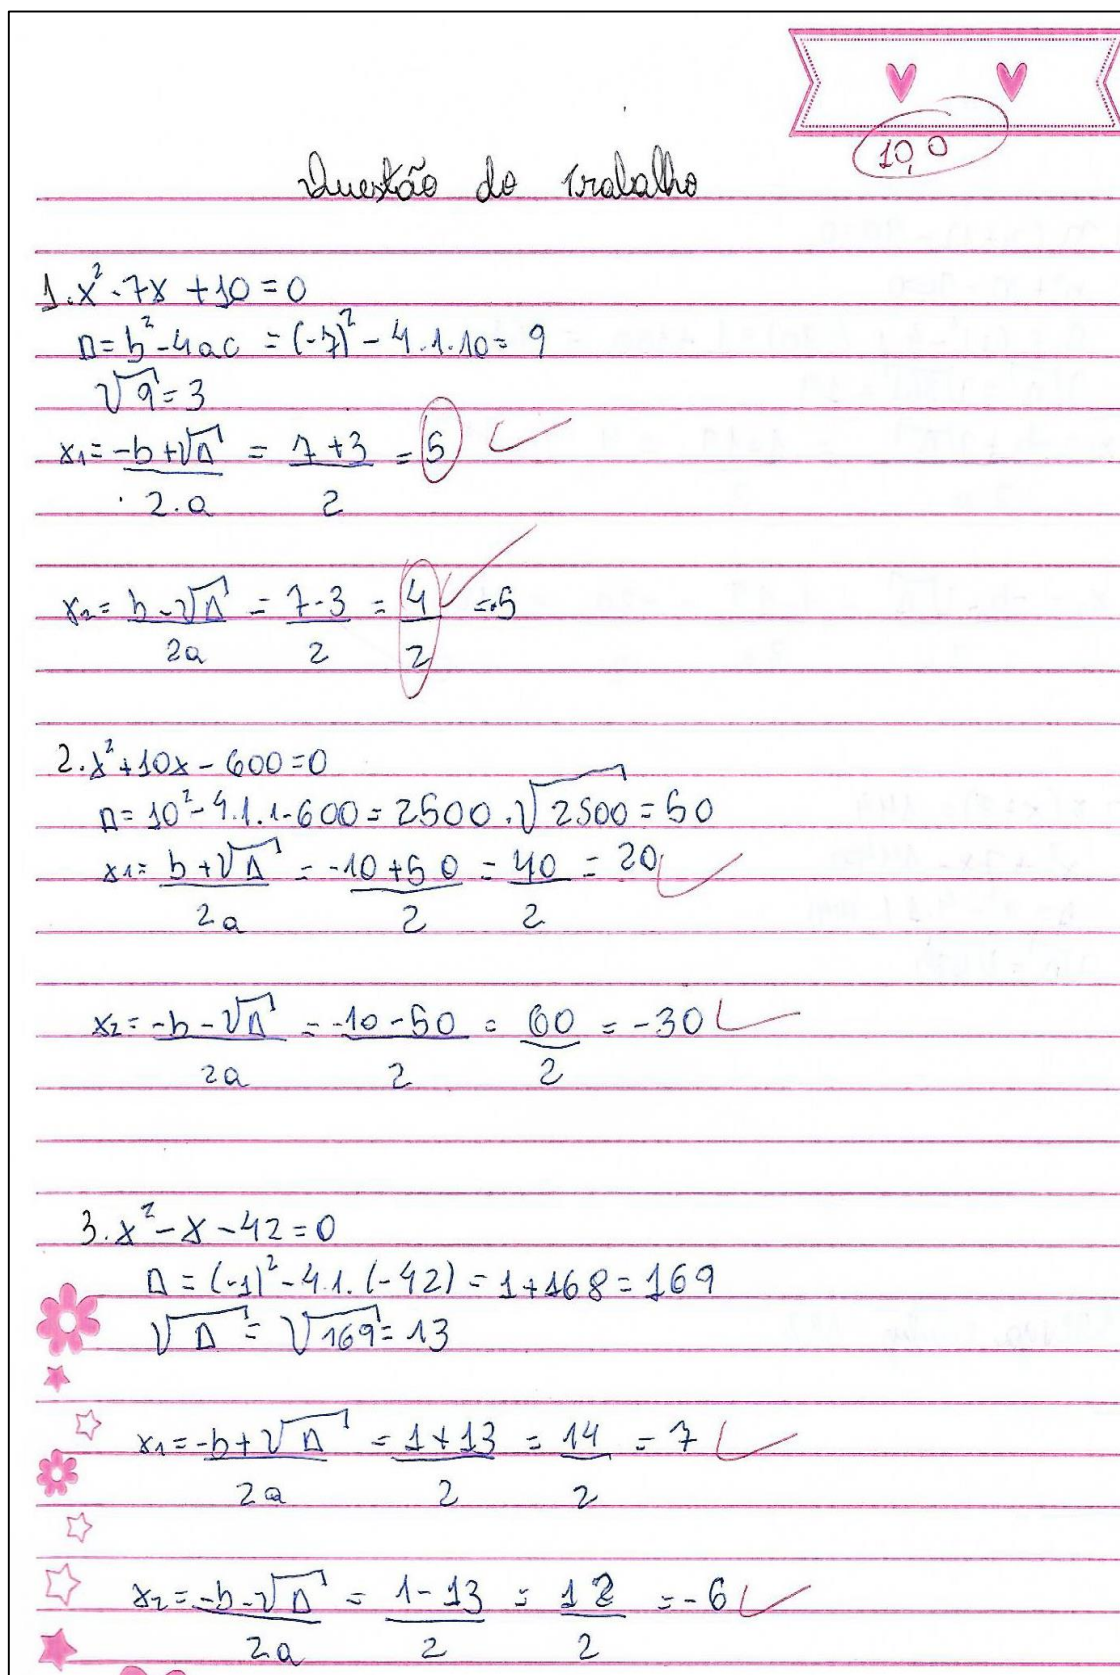 10,0
Questão do trabalho
1. x² - 7x + 10 = 0
Δ = b² - 4ac = (-7)² - 4.1.10 = 9
√9 = 3
x₁ = -b + √Δ / 2.a = 7 + 3 / 2 = 5
x₂ = b - √Δ / 2a = 7 - 3 / 2 = 4 / 2 = -5
2. x² + 10x - 600 = 0
Δ = 10² - 4.1.1-600 = 2500 . √2500 = 50
x₁ = b + √Δ / 2a = -10 + 50 / 2 = 40 / 2 = 20
x₂ = -b - √Δ / 2a = -10 - 50 / 2 = 60 / 2 = -30
3. x² - x - 42 = 0
Δ = (-1)² - 4.1.(-42) = 1 + 168 = 169
√Δ = √169 = 13
x₁ = -b + √Δ / 2a = 1 + 13 / 2 = 14 / 2 = 7
x₂ = -b - √Δ / 2a = 1 - 13 / 2 = 12 / 2 = -6